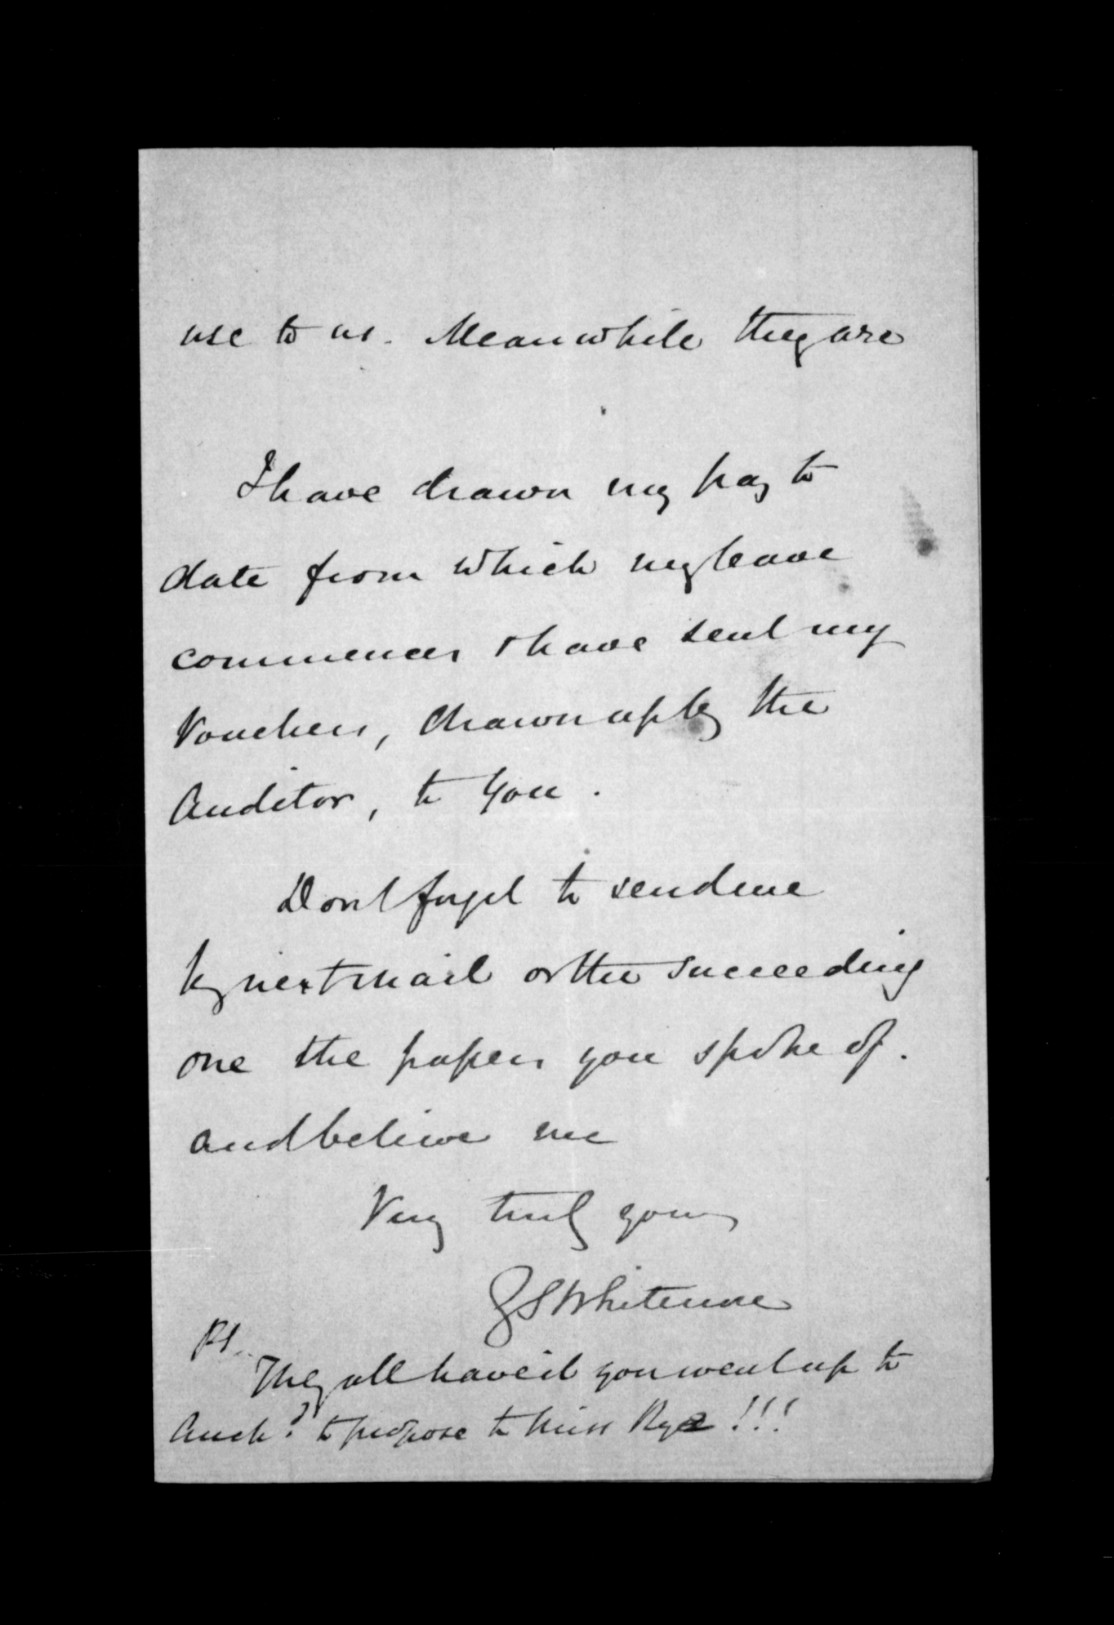 use to us. Meanwhile they are
I have drawn my pay to
date from which my leave
commences & have sent my
Vouchers, drawn up by the
Auditor, to you.
Dont forget to send me
by next mail or the succeeding
one the papers you spoke of.
and believe me
Very truly yours
GSWhitmore
PS.
They all have it you went up to
Auckd. to propose to Miss Rye!!!